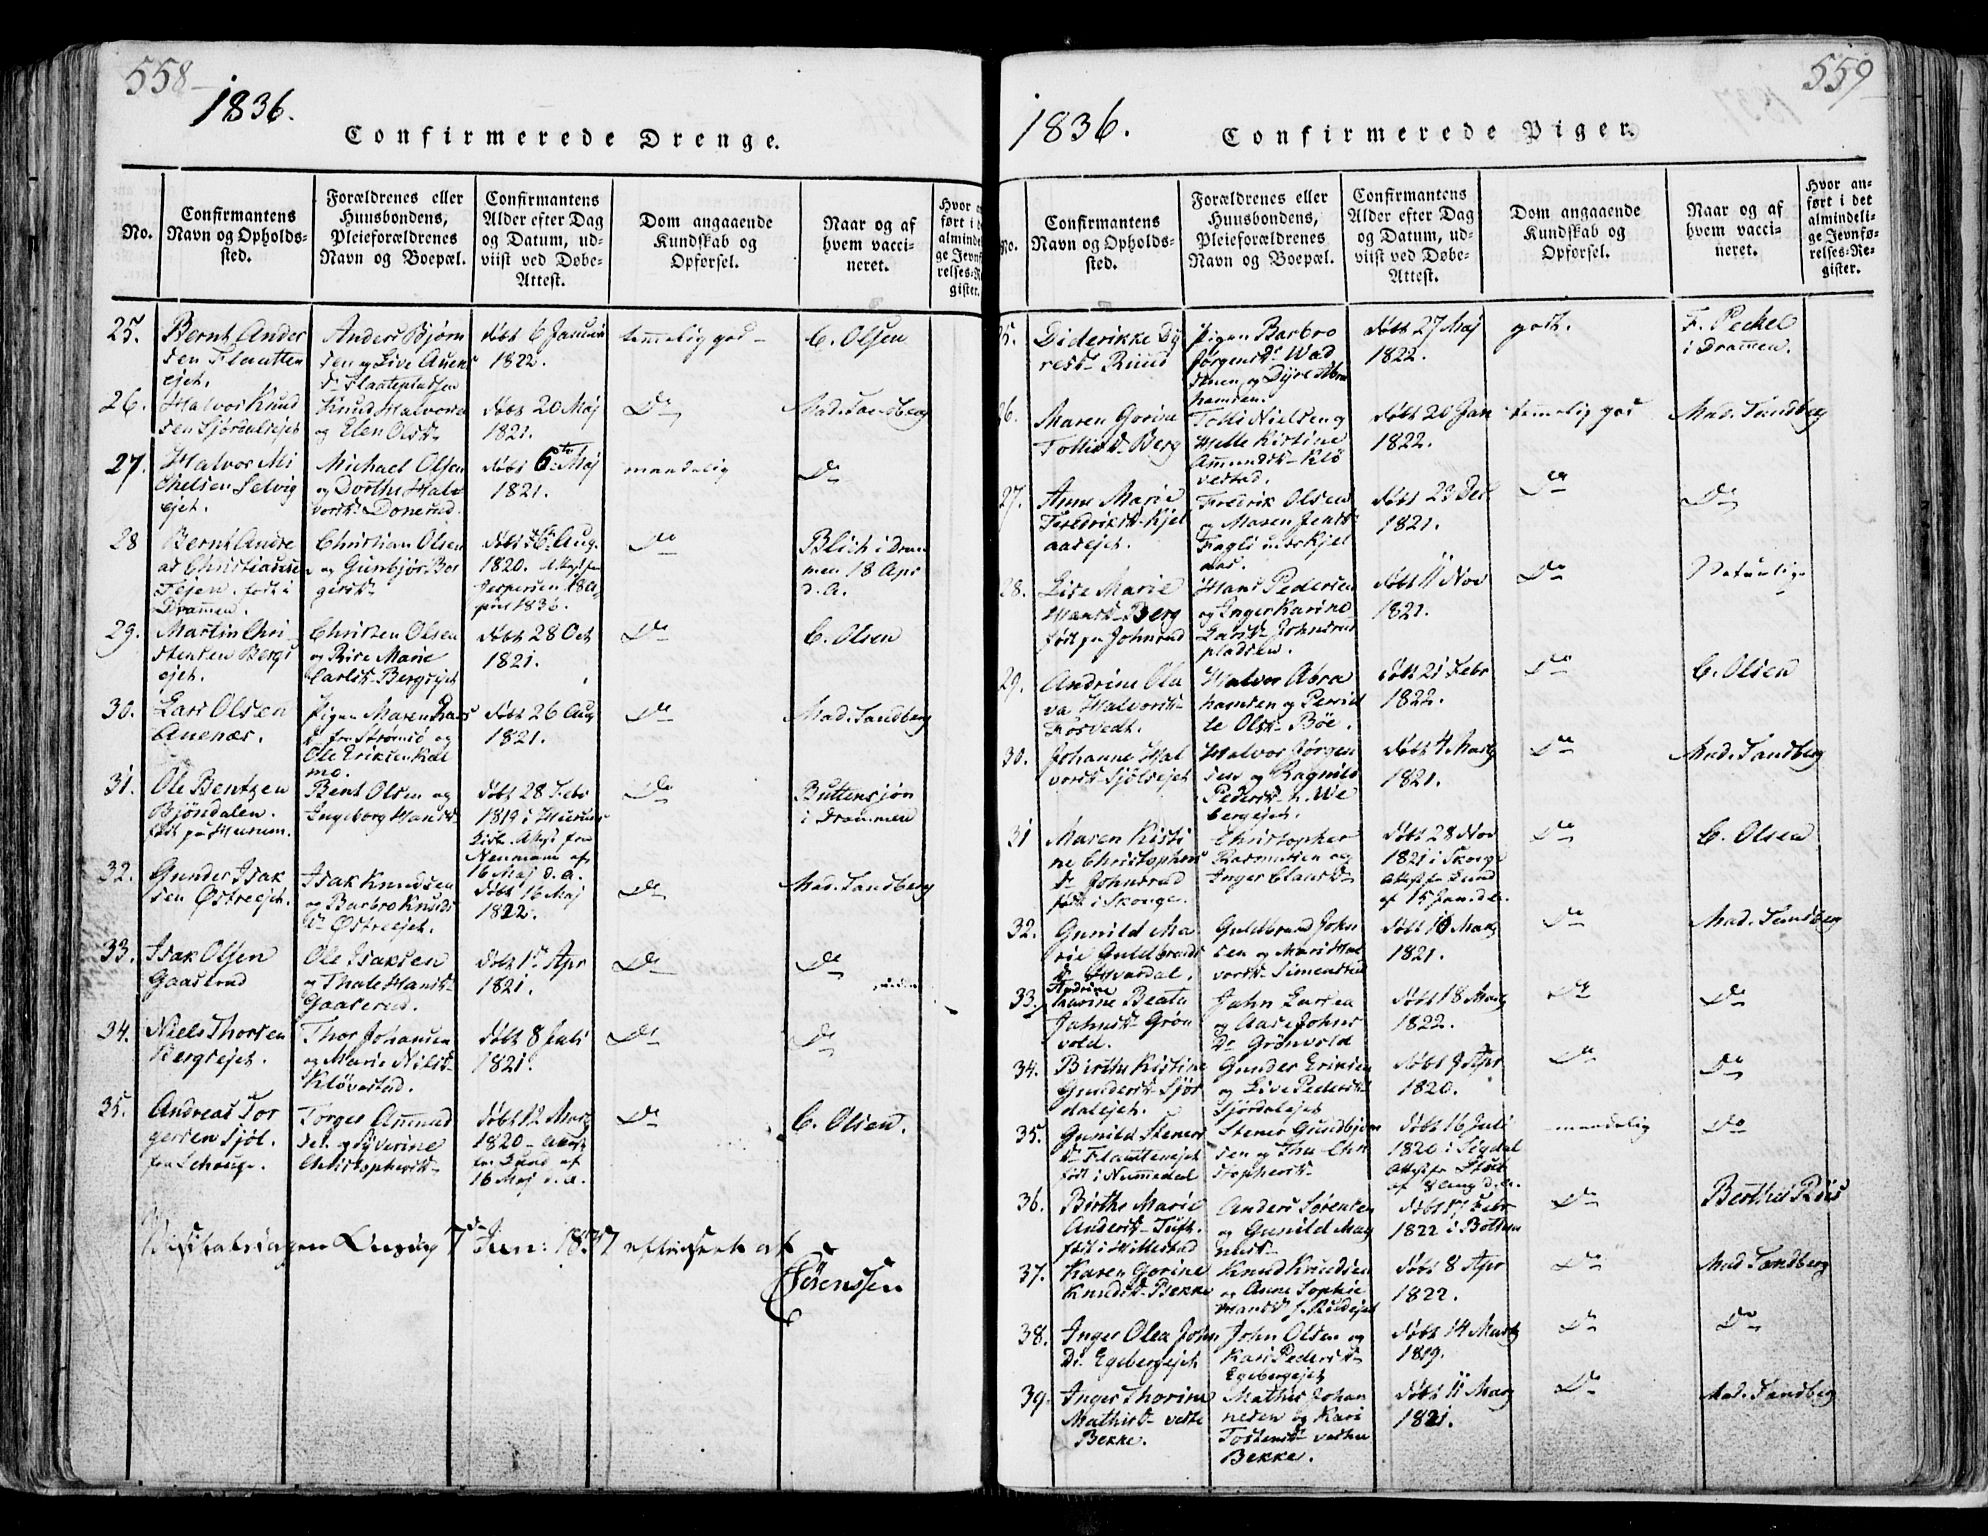 558
1836.
Confirmerede Drenge.
No.
Confirmantens
Navn og Opholds-
sted.
Forældrenes eller
Huusbondens,
Pleieforældrenes
Navn og Boepæl.
Confirmantens
Alder efter Dag
og Datum, ud-
viist ved Døbe-
Attest.
Dom angaaende
Kundskab og
Opførsel.
Naar og af
hvem vacci-
neret.
25.
Bernt Ander
sen Flaatten
ejet.
Anders Bjørn
sen og Live
døbt 6 Januar
1822.
temmelig god
C. Olsen
26.
Halvor Knud
sen Sjørdalsejet
Knud Halvorsen
og Elen Olsd.
døbt 20 Maj
1821.
Do
Mad. Sandberg
27.
Halvor Mi
chelsen Selvig
ejet.
Michael Olsen
og Dorthe Hal
vorsd. Donerud.
døbt 6te Maj
1821.
maadelig
Do
28
Bernt Andre
as Christiansen
Fejen. født i
Drammen.
Christian Olsen
og Gunbjør Bor
gersd.
Aug.
1820. Attest fra
Jespersen 18 A
pril 1836.
Do
Blich i Dram
men 18 Apr
d. A.
29.
Martin Chri
stensen Bergs
ejet.
Christen Olsen
og Rise Marie
Carlsd. Bergsejet
døbt 28 Oct
1821.
Do
C. Olsen
30.
Lars Olsen
Auenæs.
Pigen Maren Lars
d. fra Strømsø og
Ole Eriksen Kol
mo.
døbt 26 Aug
1821.
Do
Mad. Sandberg
31.
Ole Bentzen
Bjøndalen.
født paa Hurum.
Bent Olsen og
Ingeborg Hansd.
døbt 28 Febr
1819 i Hurum
Kirke. Attest fra
Neumann af
16 Maj d. A.
Do
Buttensjøn
i Drammen
32.
Gunder Isak
sen Østreejet.
Isak Knudsen
og Barbro Knuds
dr. Østreejet.
døbt 16 Maj
1822.
Do
Mad. Sandberg
33.
Isak Olsen
Gaaserud
Ole Isaksen
og Thale Hansd.
Gaaserud.
døbt 1st Apr
1821.
Do
Do
34.
Niels Thorsen
Bergsejet.
Thor Johansen
og Marie Nilsd.
Kløvestad.
døbt 8 Juli
1821.
Do
Do
35.
Andreas Tor
gersen Sjøl.
Torger Amund
sen og Syverine
Christophersd.
døbt 12 Marts
1820 - Attest
fra Lund af
16 Maj d. A.
Do
C. Olsen.
Visitatsdagen Onsdag 7de Jun: 1837 efterseet af
Sørenssen
559
1836.
Confirmerede Piger.
No.
Confirmantens
Navn og Opholds-
sted.
Forældrenes eller
Huusbondens,
Pleieforældrenes
Navn og Boepæl.
Confirmantens
Alder efter Dag
og Datum, ud-
viist ved Døbe-
Attest.
Dom angaaende
Kundskab og
Opførsel.
Naar og af
hvem vacci-
neret.
Hvor an-
ført i det
almindeli-
ge Jevnfø-
relses-Re-
gister.
25.
Diderikke Dy
resd. Ruud
Pigen Barbro
Jørgensd. Wad
stuen og Dyre Abra
hamsen.
døbt 27 Maj
1822.
godt.
F. Peckel
i Drammen.
26.
Maren Gorine
Tollisd. Berg
Tolli Nielsen og
Helle Kirstine
Amundsd. Klø
vestad.
døbt 20 Jan
1822.
temmelig god
Mad. Sandberg
27.
Anne Marie
Fredriksd. Kjel
aasejet.
Fredrik Olsen
og Maren Jensd.
døbt 23 Dec.
1821.
Do
Do
28.
Lise Marie
Hansd. Berg
født paa Johnsrud
Hans Pedersen
og Inger Karine
Larsd. Johnsrud
pladsen.
døbt 11 Nov
1821.
Do
Naturlige
29.
Andrine Ola
va Halvorsd.
Forsvedt.
Halvor Abra
hamsen og Pernil
le Olsd. Bøe.
døbt 21 Febr
1822.
Do
C. Olsen
30.
Johanne Hal
vorsd. Sjølsejet
Halvor Jørgen
sen og Ragnild
Pedersd. We
bergejet.
døbt 4 Marts
1821.
Do
Mad. Sandberg
31
Maren Kisti
ne Christophers
dr. Johnsrud
født i Skouger
Christopher
Rasmussen og
Inger Clausd.
døbt 28 Nov
1821 i Skouge
Attest fra Lund
af 15 Jan. d.A.
Do
C. Olsen
32.
Gunild Ma
rie Guldbrands
Guldbrand John
sen og Mari Hal
vorsd. Simenstue
døbt 10 Marts
1821.
Do
Mad. Sandberg
33.
Andrine
Beata
Johnsd. Grøn
vold.
John Larsen
og Aase Johns
Dr. Grønvold
døbt 18 Marts
1822.
Do
Do
34.
Birthe Kistine
Gundersd. Sjør
dalejet.
Gunder Eriksen
og Live Pedersd.
Sjørdalejet
døbt 9 Apr
1820.
Do
Do
35.
Gunild Steners
d. Flaattenejet
født i Nummedal
Stener Gundbjørn
sen og Chri
stophersd.
døbt 16 Juli
1820 i Sigdal
af 8 Aug d. A.
maadelig
Do
36.
Birthe Marie
Andersd. Tuft.
født i Hillestad
Anders Sørensen
og Gunild Mag
nusd.
døbt 17 Febr
1822 i Botten
Do
Berthes Riis
37.
Karen Gorine
Knudsd. Bekke
Knud Knudsen
og Anne Sophie
Hansd.
døbt 8 Apr
1822.
Do
Mad Sandberg
38.
Inger Olea John
Dr. Egebergejet
John Olsen og
Kari Pedersd.
Egebergejet
døbt 14 Marts
1819.
Do
Do
39
Inger Thorine
Mathisd. vestre
Bekke.
Mathis Johan
nesen og Kari
Tostensd. vestre
Bekke.
døbt 11 Marts
1821.
Do
Mad. Sandberg